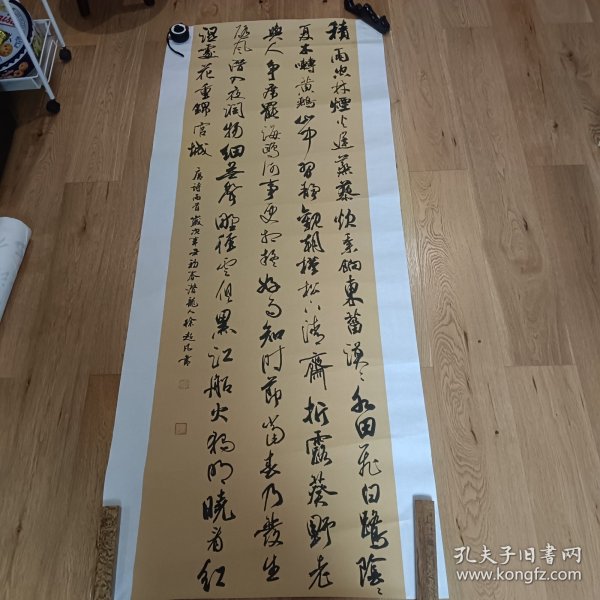 積雨空林煙火遲蒸藜炊黍餉東菑漠々水田飛白鷺陰々
夏木囀黃鸝山中習靜觀朝槿松下清齋折露葵野老
與人爭席罷海鷗何事更相疑好雨知時節當春乃發生
隨風潛入夜潤物細無聲野徑雲俱黑江船火獨明曉看紅
濕處花重錦官城
唐詩两首歲次辛丑初春潛龍人徐書
孔夫子旧書网
www.kongfz.com